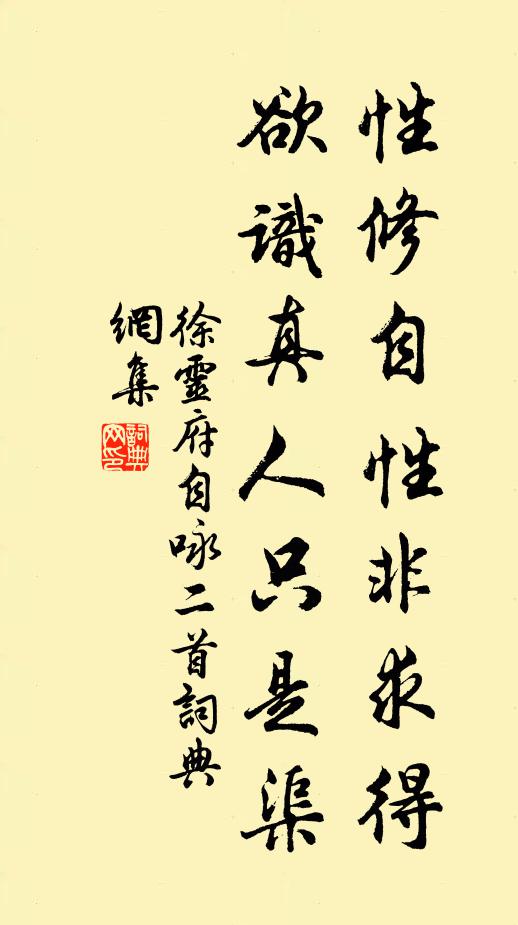 性修自性非求得
欲識真人只是渠
徐靈府自咏二首詞典
網集
詞典
网印